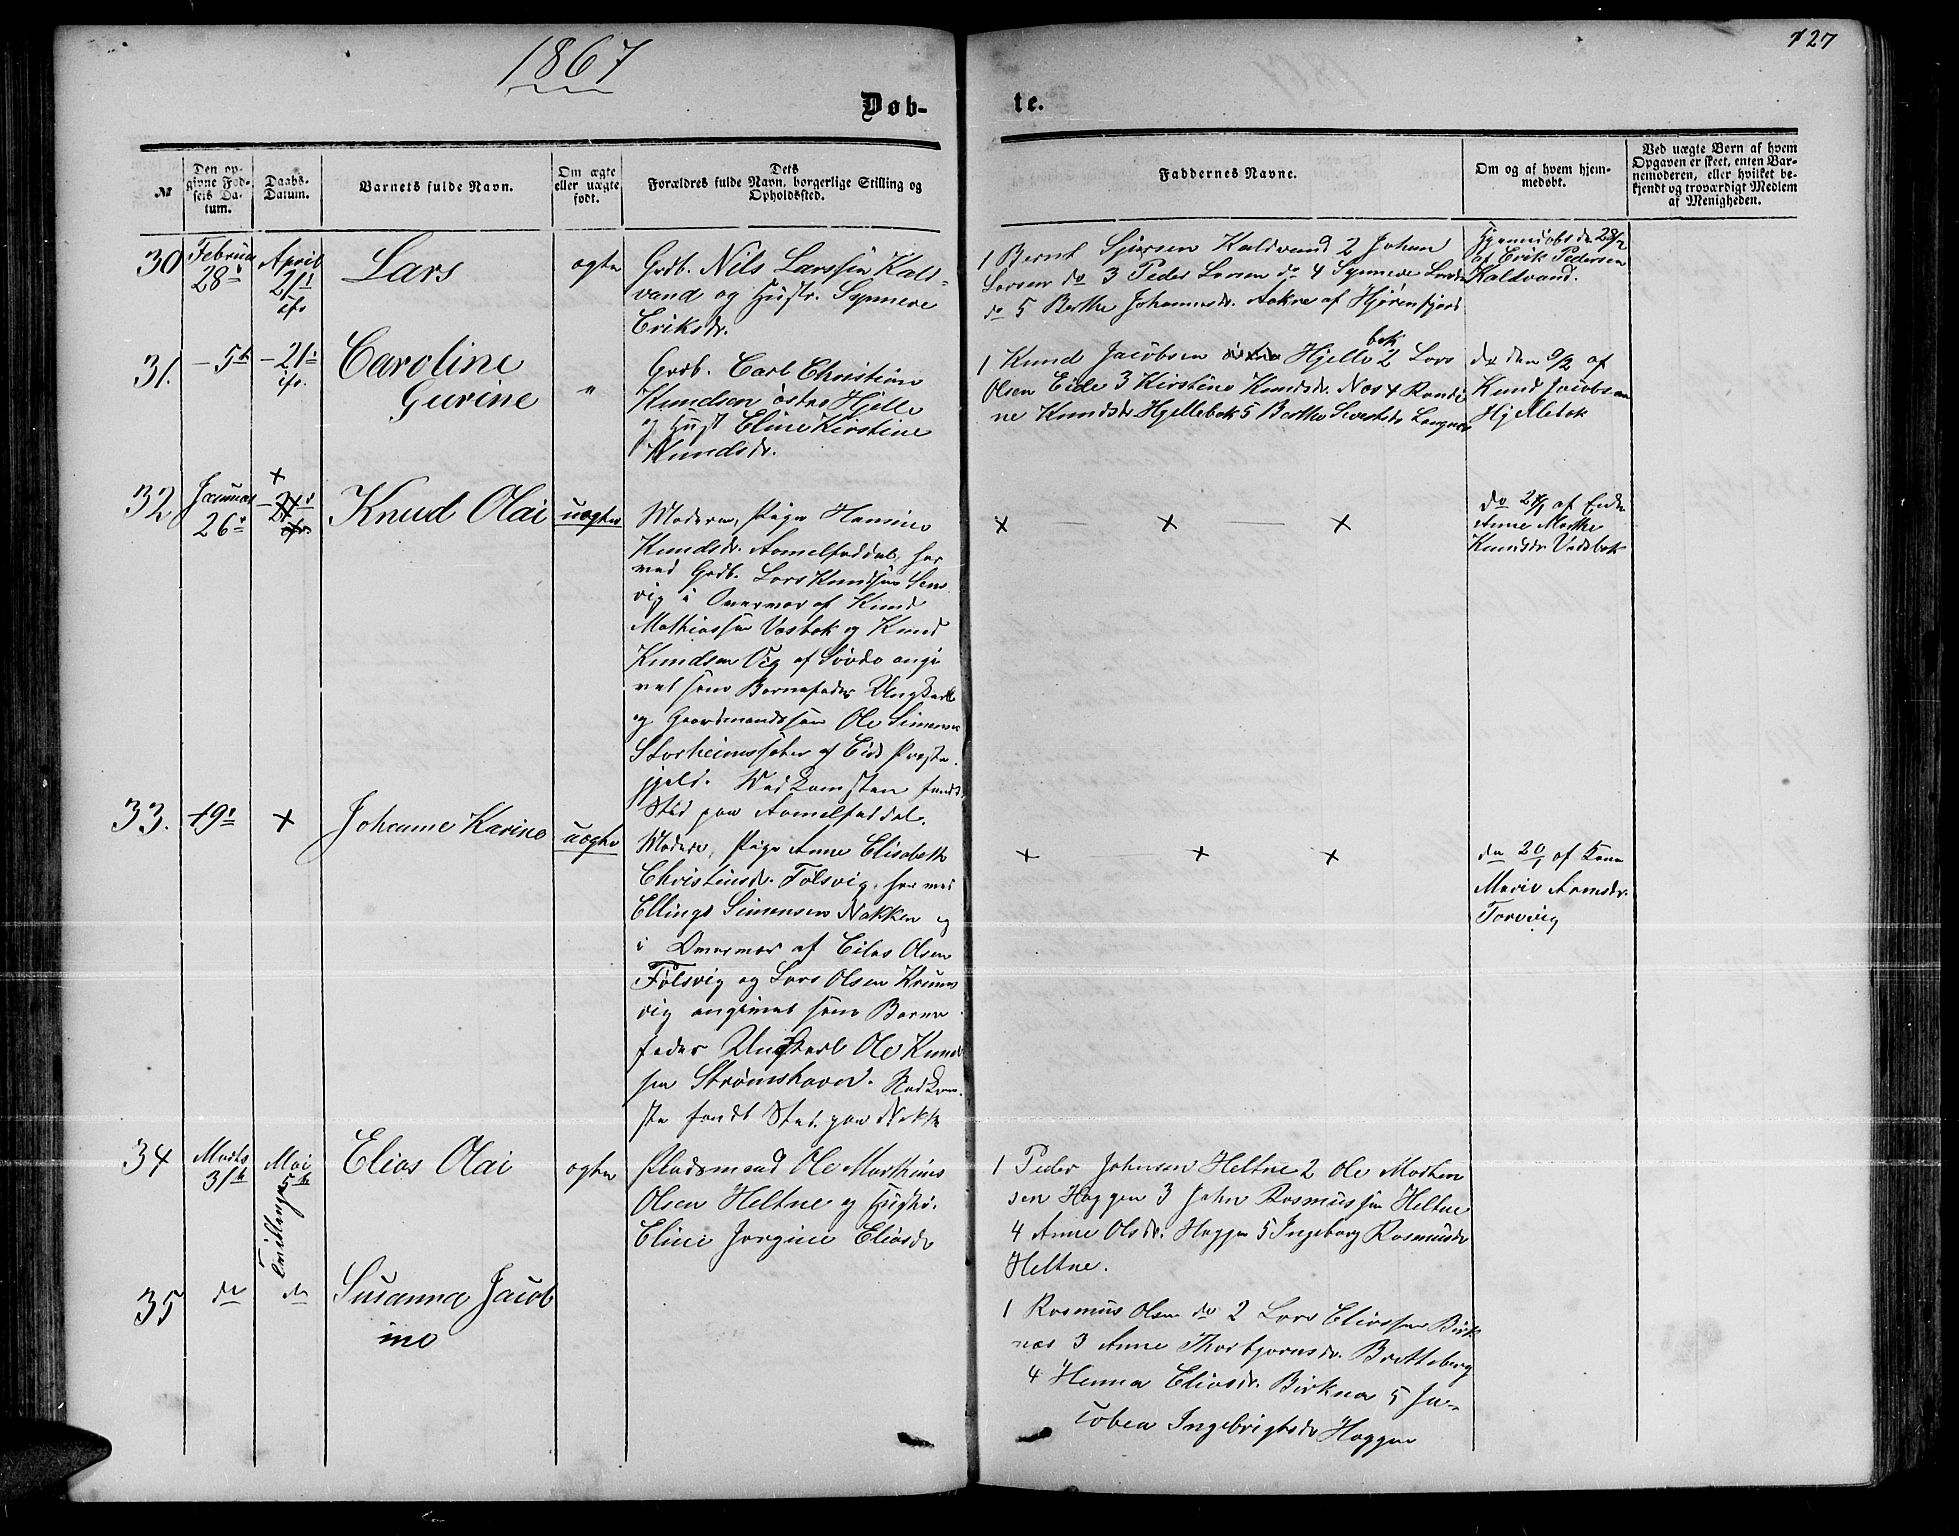 1867
127
Døb-
te.
№
Den op-
givne Fød-
sels Da-
tum.
Daabs-
Datum.
Barnets fulde Navn.
Om ægte
eller uægte
født.
Dets
Forældres fulde Navn, borgerlige Stilling og
Opholdssted.
Faddernes Navne.
Om og af hvem hjem-
medøbt.
Ved uægte Børn af hvem
Opgaven er skeet, enten Bar-
nemoderen, eller hvilket be-
kjendt og troværdigt Medlem
af Menigheden.
30
Februar
28
April
21
Lars
ægte
Grdb. Nils Larssen Kald-
vand og Hustr. Synneve
Eriksdr.
1 Bernt Kaldvand 2 Johan
Larsen do 3 Peder Larsen do 4 Synneve Larsdr
do 5 Berthe Johannesdr. Aakre af Hjørenfjord
Hjemmedøbt d. 28/2
af Erik Pedersen
Kaldvand.
31.
- 5
- 21
Caroline
Gurine
"
Grdb. Carl Christian
Knudsen østre Hjelle
og Hust Eline Kirstine
Knudsdr.
bak
1 Knud Jacobsen Hjelle 2 Lars
Olsen Eide 3 Kirstine Knudsdr. Næs 4 Randi
ne Knudsdr Hjellebak 5 Berthe Sivertsdr Langnæs
do den 9/2 af
Knud Jacobsen
Hjellebak
32
Januar
26
+
- 21
Knud Olai
uægte
Moderen, Pige Hanine
Knudsdr. Aamelfaddal, har
ved Grdb. Lars Knudsen
vig i Overvær af Knud
Mathiassen Vasbak og Knud
Knudsen Vig af Søvde angi
vet som Barnefader Ungkarl
og Gaardmandssøn Ole Simensen
Storheimssæter af Eids Præste
gjeld. Nedkomsten fandt
Sted paa Aamelfaddal.
+ + +
do af Enke
Anne Marthe
Knudsdr Vadsbak
33.
19
+
Johanne Karine
uægte
Moder, Pige Anne Elisabeth
Christensdr. Følsvig, har med
Elling Simensen Nakken og
i Overvær af Eilas Olsen
Følsvig og Lars Olsen
vig angivet som Barne
fader Ungkarl Ole Knud
sen Strømshavn. Nedkom
ste fandt Sted paa Nakke
+ + +
do 20/1 af Kone
Marie
Torvig
34
Marts
31
Mai
5
Elias Olai
ægte
Pladsmand Ole Marthinus
Olsen Heltne og Hustru
Eline Jorgine Eliasdr
Tvillinger
1 Peder Johnsen Heltne 2 Ole Morten
sen Haggen 3 John Rasmussen Heltne
4 Anne Olsdr. Haggen 5 Ingeborg Rasmusdr
Heltne.
35
do
do
Susanna Jacob
ine
1 Rasmus Olsen do 2 Lars Eliassen Birk
næs 3 Anne Thorbjørnsdr. Bratteberg
4 Henna Eliasdr. Birknæ 5 Ja-
cobea Ingebrigtsdr Haggen